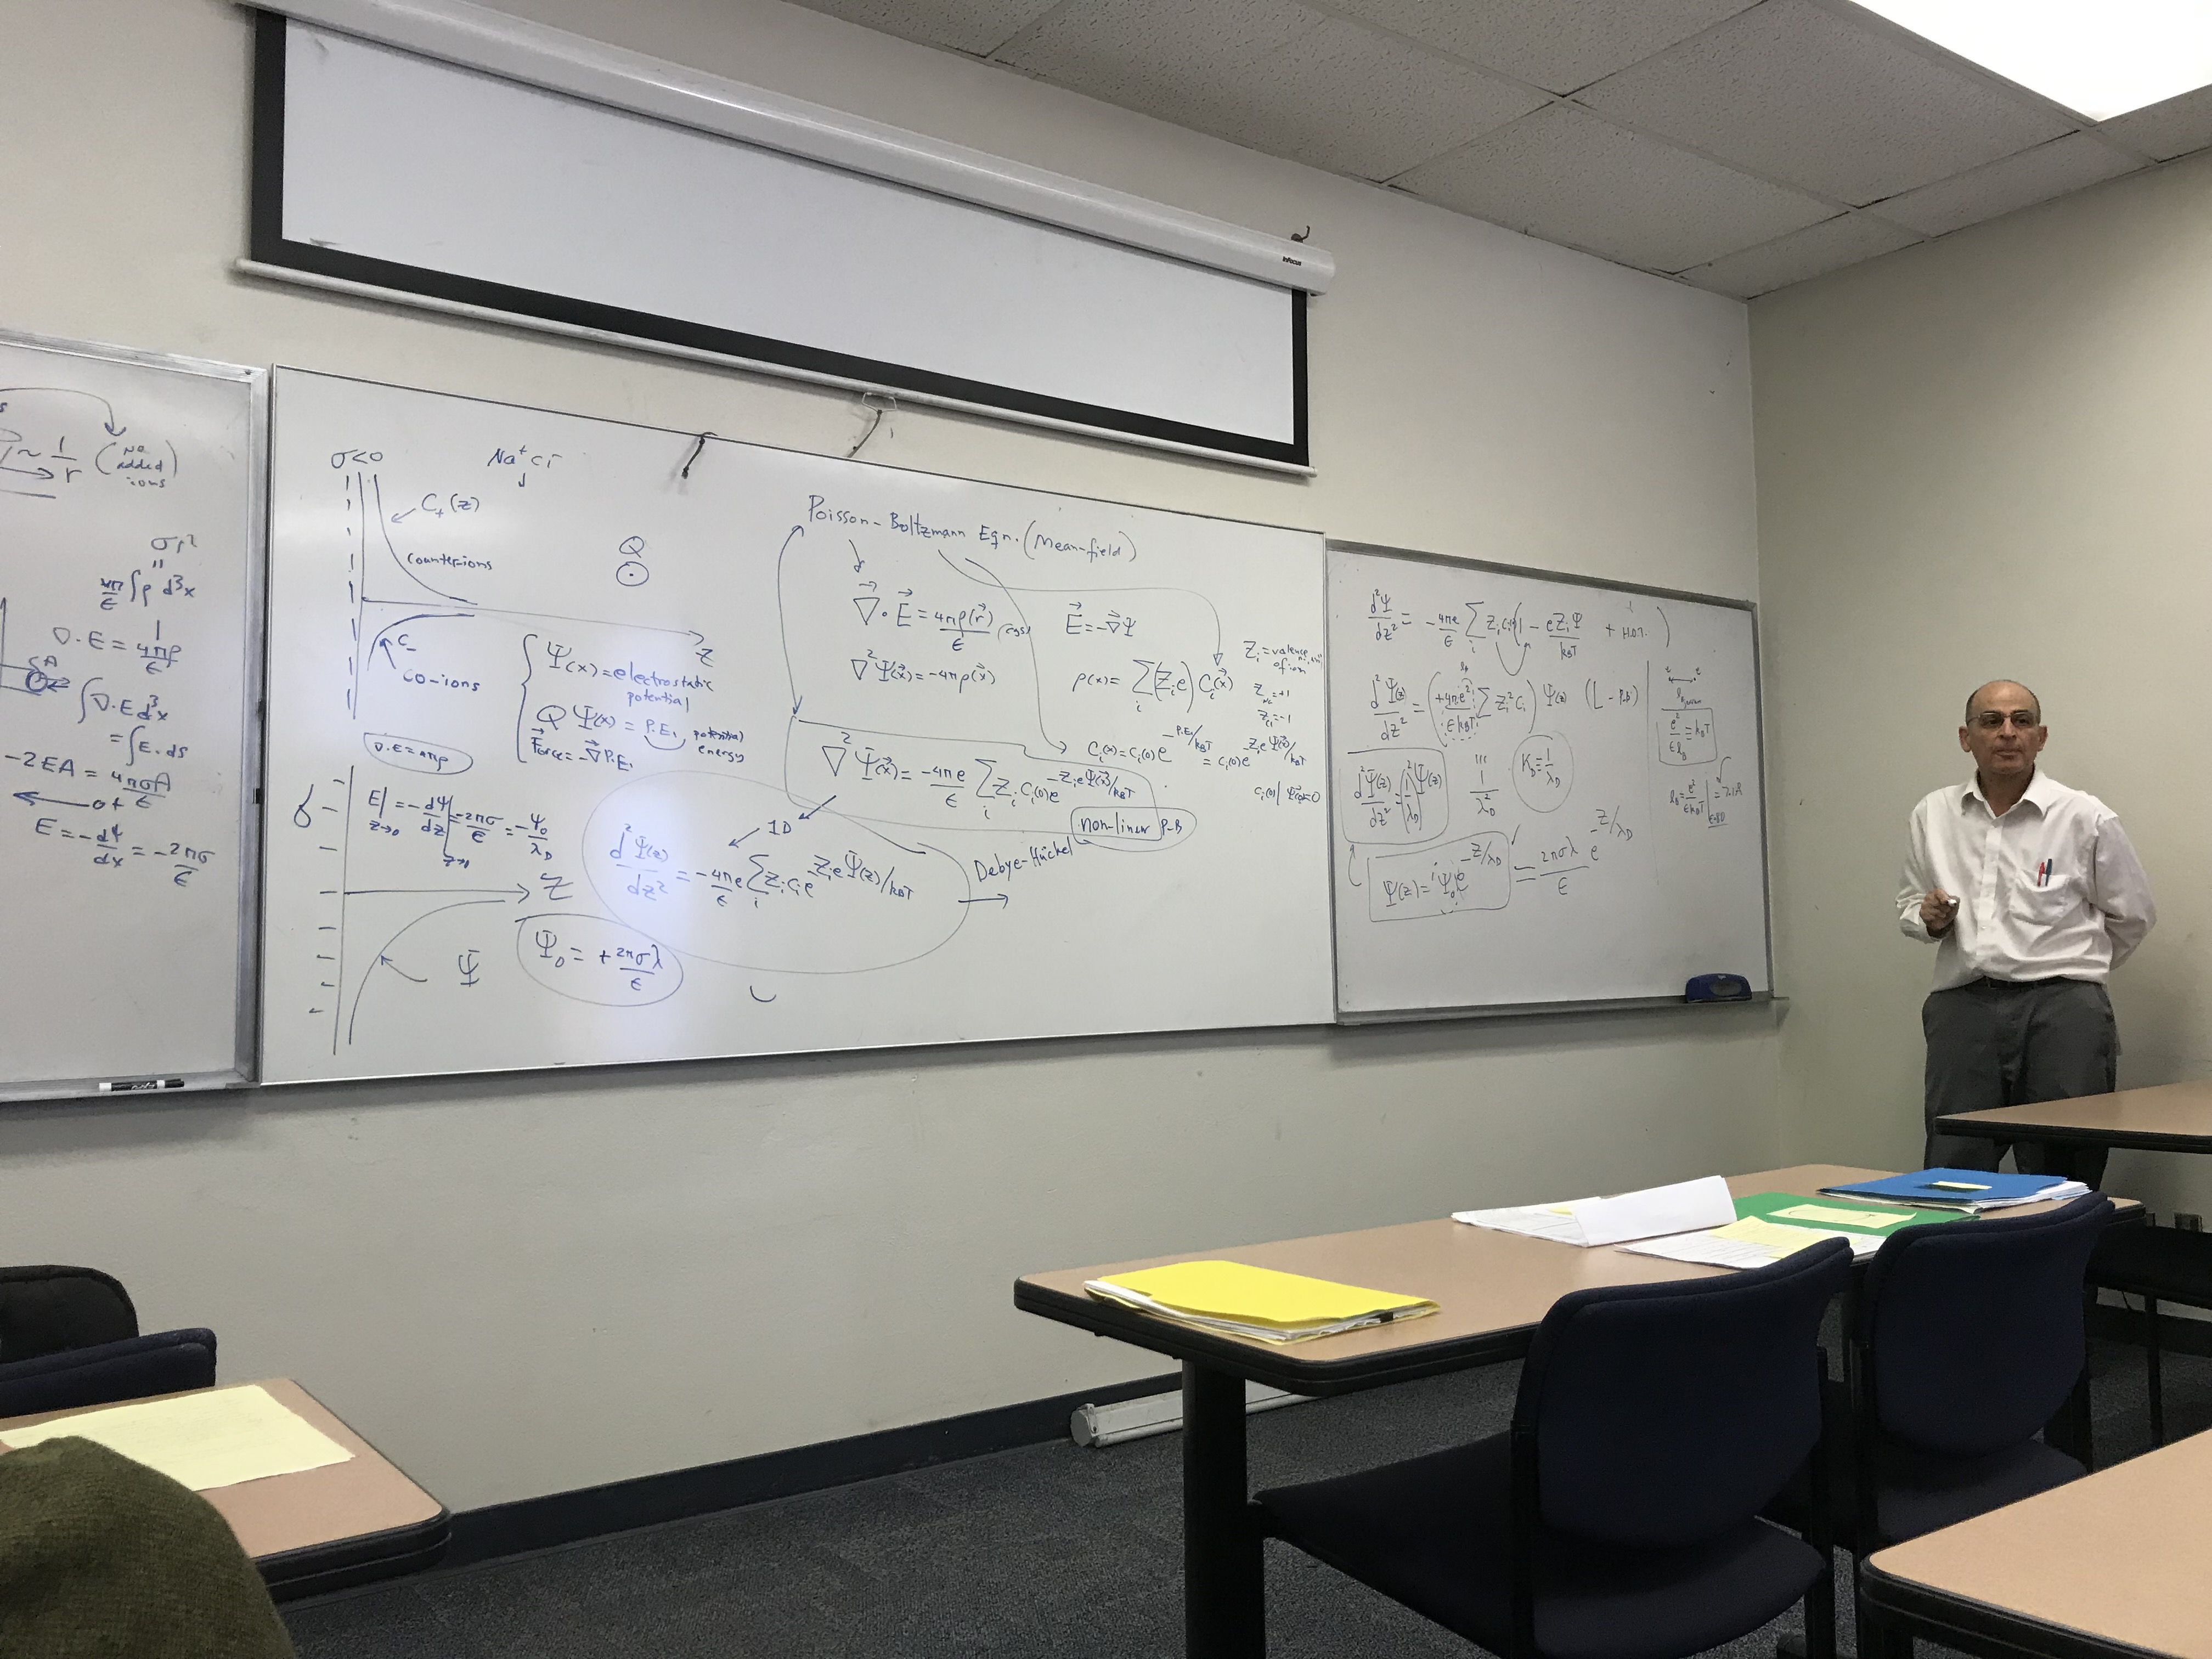 infocus
~ 1/r (No added ions)
σr²
"
4π/ϵ ∫ρ d³x
∇·E = 4πρ/ϵ
∫∇·E d³x
= ∫E·ds
-2EA = 4πσA/ϵ
E = -dψ/dx = -2πσ/ϵ
σ<0
Na⁺Cl⁻
C₊(z)
counterions
C₋
co-ions
z
Q
Ψ(x) = electrostatic potential
QΨ(x) = P.E. potential energy
Force = -∇P.E.
∇·E = 4πρ
E|z→0 = -dΨ/dz|z→0 = 2πσ/ϵ = -Ψ₀/λD
σ
z
Ψ
Ψ₀ = + 2πσλ/ϵ
Poisson-Boltzmann Eqn. (Mean-field)
∇·E = 4πρ(r)/ϵ (cgs)
E = -∇Ψ
∇²Ψ(x) = -4πρ(x)
ρ(x) = Σi (Zie) Ci(x)
Zi = valence of ion
Z = +1
Z = -1
Ci(x) = Ci(0)e^-P.E./kBT = Ci(0)e^-ZieΨ(x)/kBT
Ci(0) | Ψ(0)=0
∇²Ψ(x) = -4πe/ϵ Σi ZiCi(0)e^-ZieΨ(x)/kBT
non-linear P-B
1D
d²Ψ(z)/dz² = -4πe/ϵ Σi ZiCie^-ZieΨ(z)/kBT
Debye-Hückel
d²Ψ/dz² = -4πe/ϵ Σi ZiCi(1 - eZiΨ/kBT + H.O.T.)
d²Ψ(z)/dz² = (+4πe²/ϵkBT Σ Zi²Ci) Ψ(z) (L-P.B)
d²Ψ(z)/dz² = (1/λD)² Ψ(z)
1/λD²
KD = 1/λD
Ψ(z) = Ψ₀e^-z/λD = 2πσλ/ϵ e^-z/λD
e²/ϵlB = kBT
lB = e²/ϵkBT